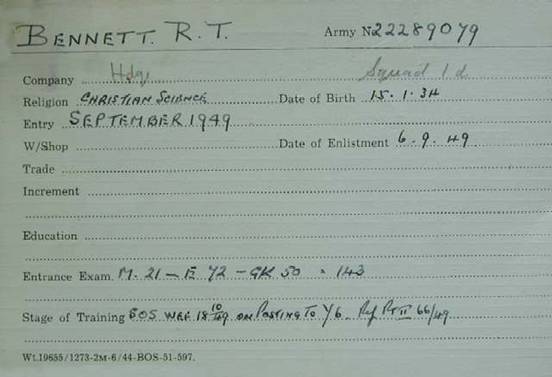 BENNETT. R. T. Army No 22289079
Company Hdqs Squad 1d
Religion CHRISTIAN SCIENCE Date of Birth 15.1.34
Entry SEPTEMBER 1949
W/Shop Date of Enlistment 6.9.49
Trade
Increment
Education
Entrance Exam. M.21 — E 72 — GK 50 = 143
Stage of Training SOS WEF 18 10/49 ON POSTING TO Y6. Ref Pt II 66/49
Wt.19655/1273-2M-6/44-BOS-51-597.